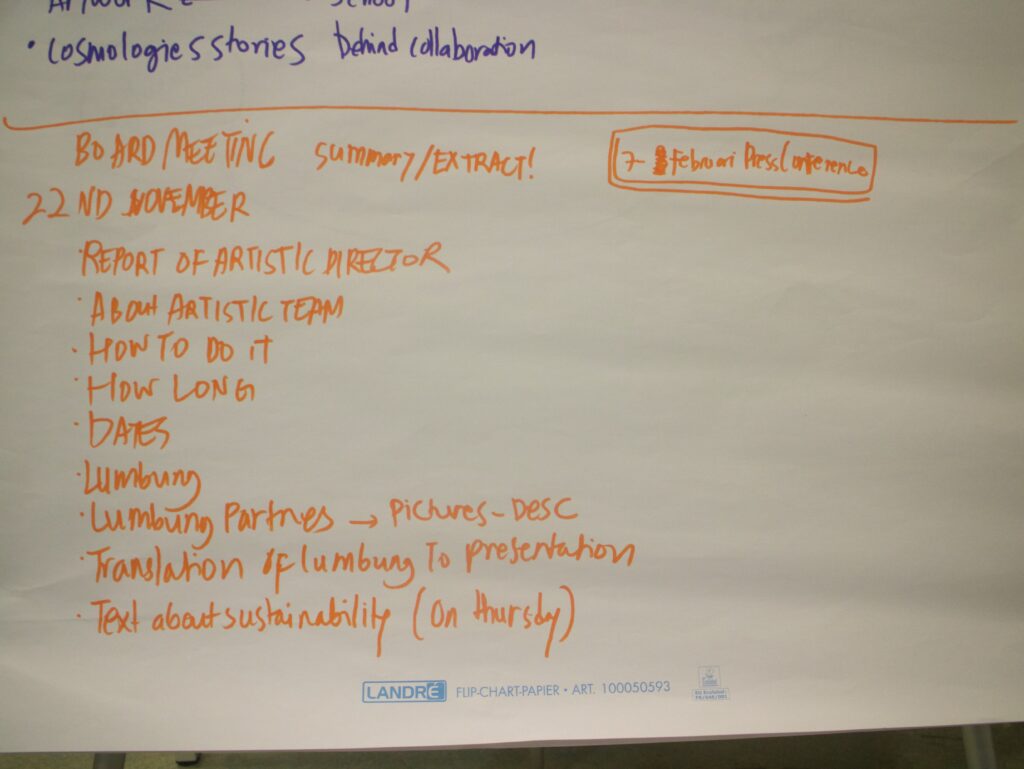 Artwork school
• Cosmologies stories behind collaboration
BOARD MEETING summary/EXTRACT!
7- februari Press Conference
22ND NOVEMBER
· REPORT OF ARTISTIC DIRECTOR
· ABOUT ARTISTIC TEAM
· HOW TO DO IT
· HOW LONG
· DATES
· Lumbung
· Lumbung Partnes → Pictures - DESC
· Translation of lumbung To presentation
· Text about sustainability (On thursday)
LANDRÉ FLIP-CHART-PAPIER • ART. 100050593